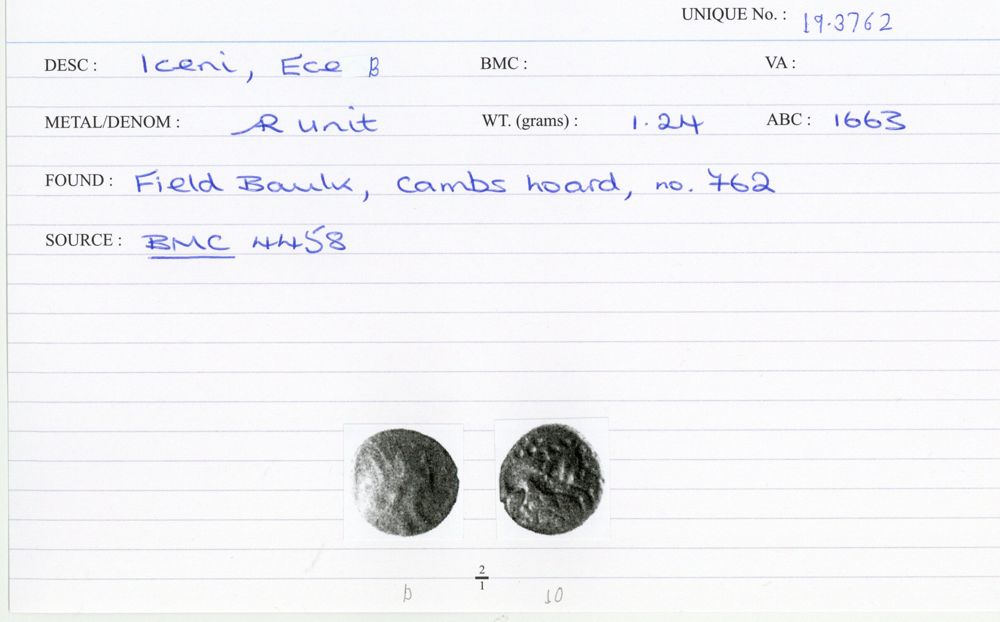 UNIQUE No. : 19.3762
DESC : Iceni, Ece B BMC : VA :
METAL/DENOM : AR unit WT. (grams) : 1.24 ABC : 1663
FOUND : Field Baulk, Cambs hoard, no. 762
SOURCE : BMC 4458
2
1
b 10